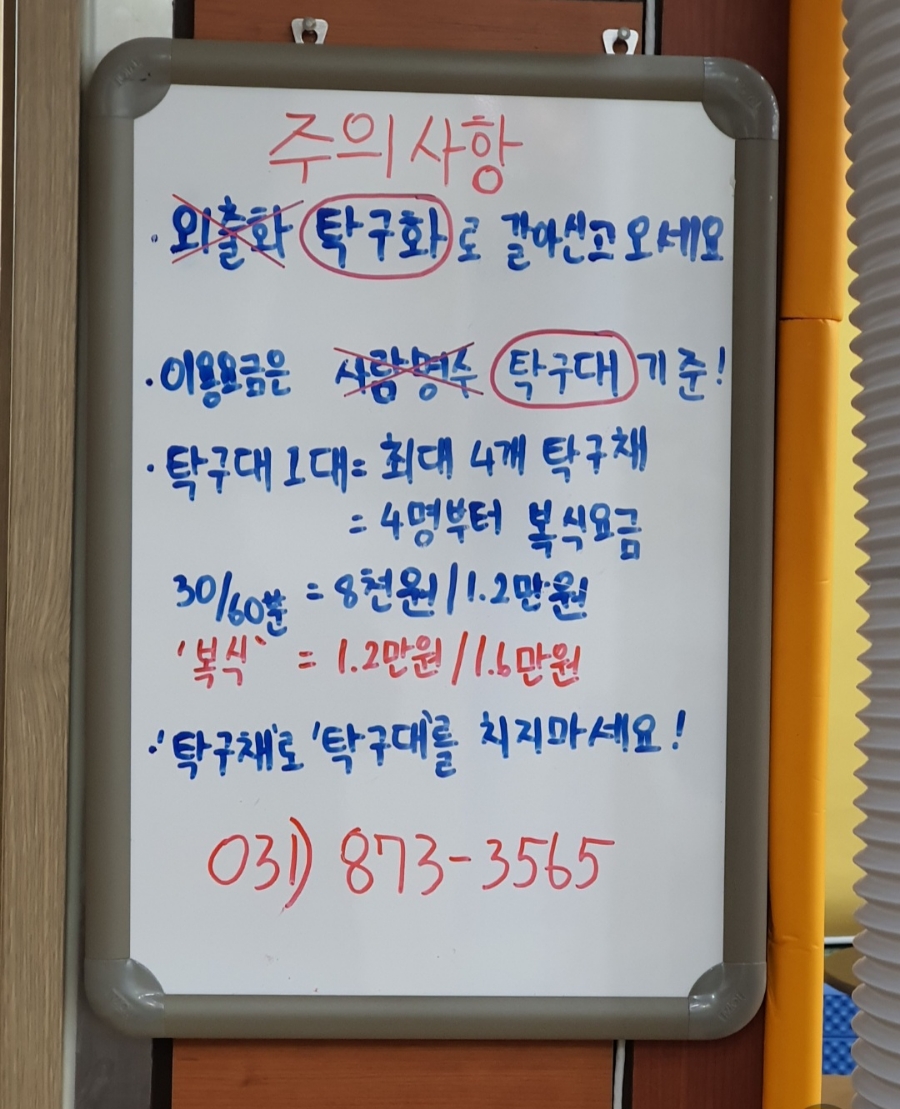 주의사항
· 외출화 탁구화로 갈아신고 오세요
· 이용요금은 사람명수 탁구대 기준!
· 탁구대 1대 = 최대 4개 탁구채
= 4명부터 복식요금
30/60분 = 8천원/1.2만원
'복식' = 1.2만원/1.6만원
· '탁구채'로 '탁구대'를 치지마세요!
031) 873-3565